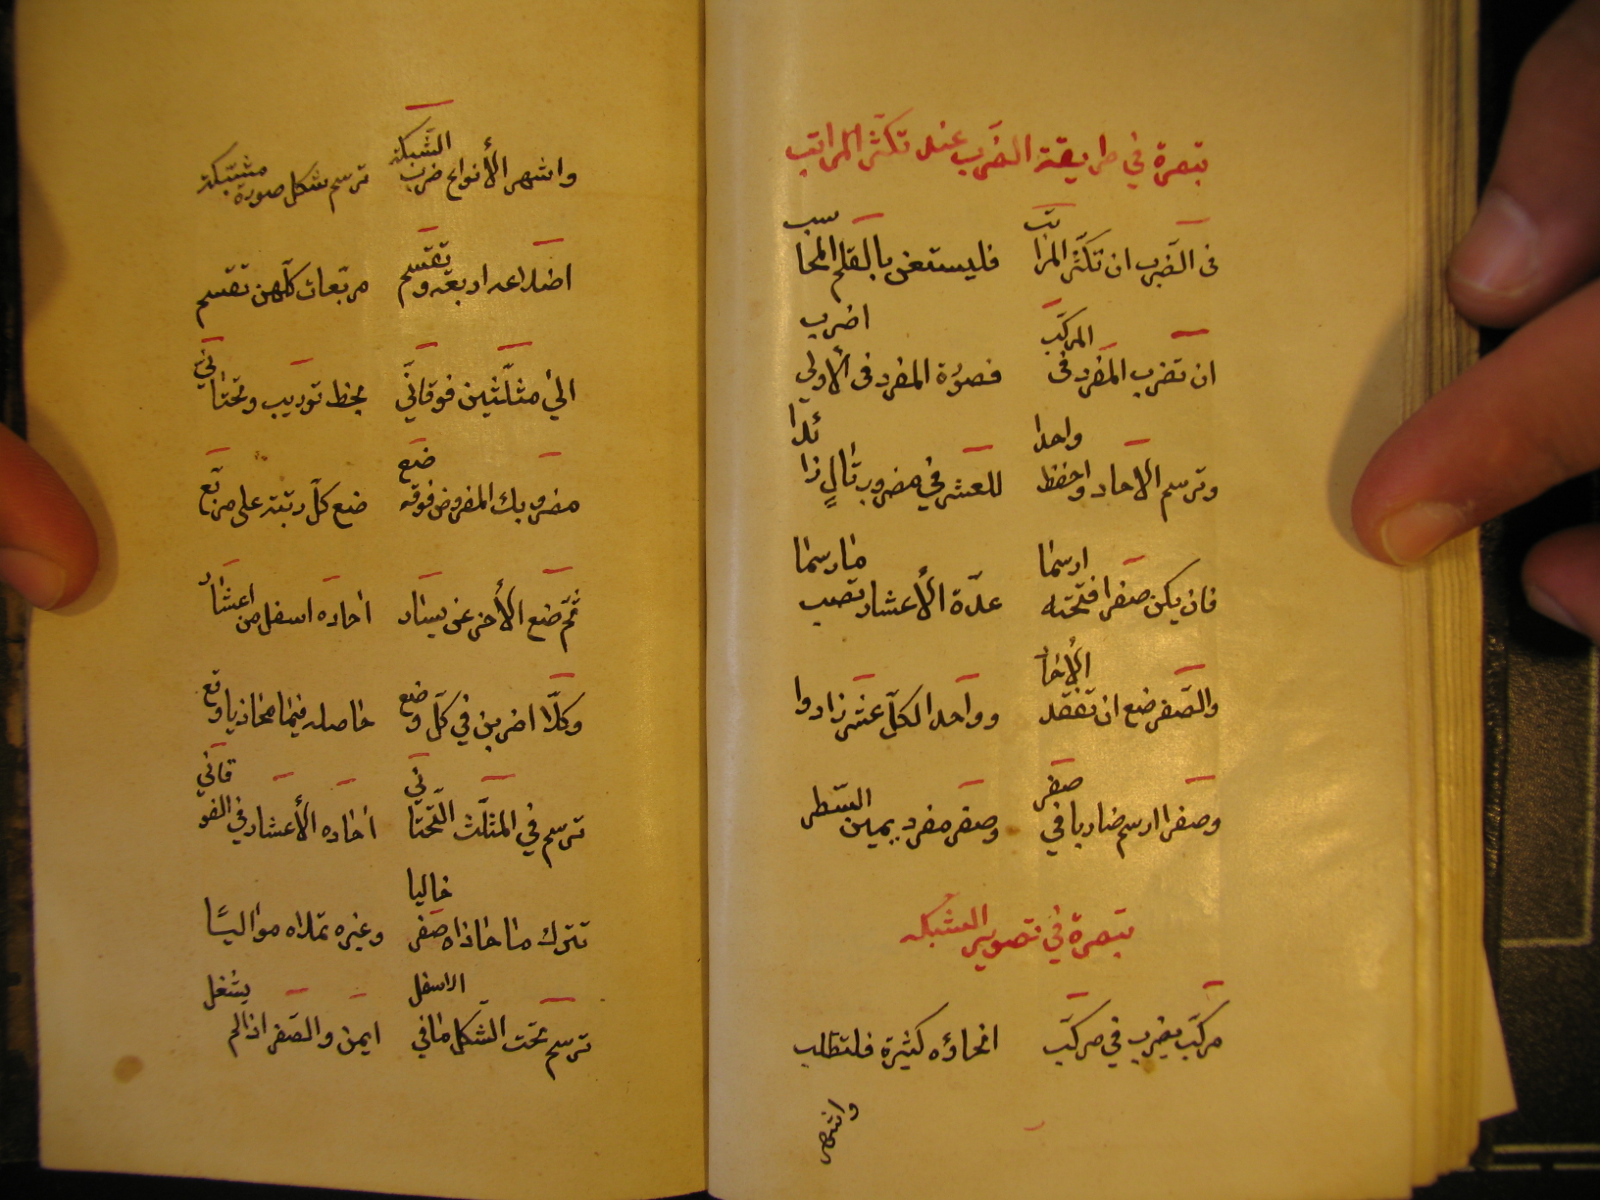 تبصرة في طريقة الضرب عند تكثر المراتب
فى الضرب ان تكثر المراتب فليستعن بالقلم المحاسب
ان تضرب المفرد فى المركب فصورة المفرد فى الأولي اضرب
وترسم الآحاد واحفظ واحدا للعشر في مضروب تالٍ زائدا
فان يكن صفر افتحته ارسما عدة الأعشار تصب مارسما
والصفر ضع ان تفقد الأحا وواحدا لكل عشر زادوا
وصفرا ارسم ضاربا في صفر وصفر مفرد يمين السطر
تبصرة في تصوير الشبكه
مركب يضرب في مركب انحاؤه كثيرة فلتطلب
واشهر
واشهر الأنواع ضرب الشبكة ترسم شكل صورة مشبكة
اضلاعه اربعة وتقتسم مربعات كلهن تقتسم
الي مثلثين فوقاني بخط توريب وتحتاني
مضروبك المفروض فوقه ضع ضع كل رتبة على مربع
ثم ضع الأخر عن يسار احاده اسفل من اعشار
وكلا اضربن في كل وضع حاصله فيما محاذيا وقع
ترسم في المثلث التحتاني احاده الأعشار في الفوقاني
تترك ما حاذاه صفر خاليا وغيره تملاه مواليًا
ترسم تحت الشكل ما في الاسفل ايمن والصفر اذا لم يشغل